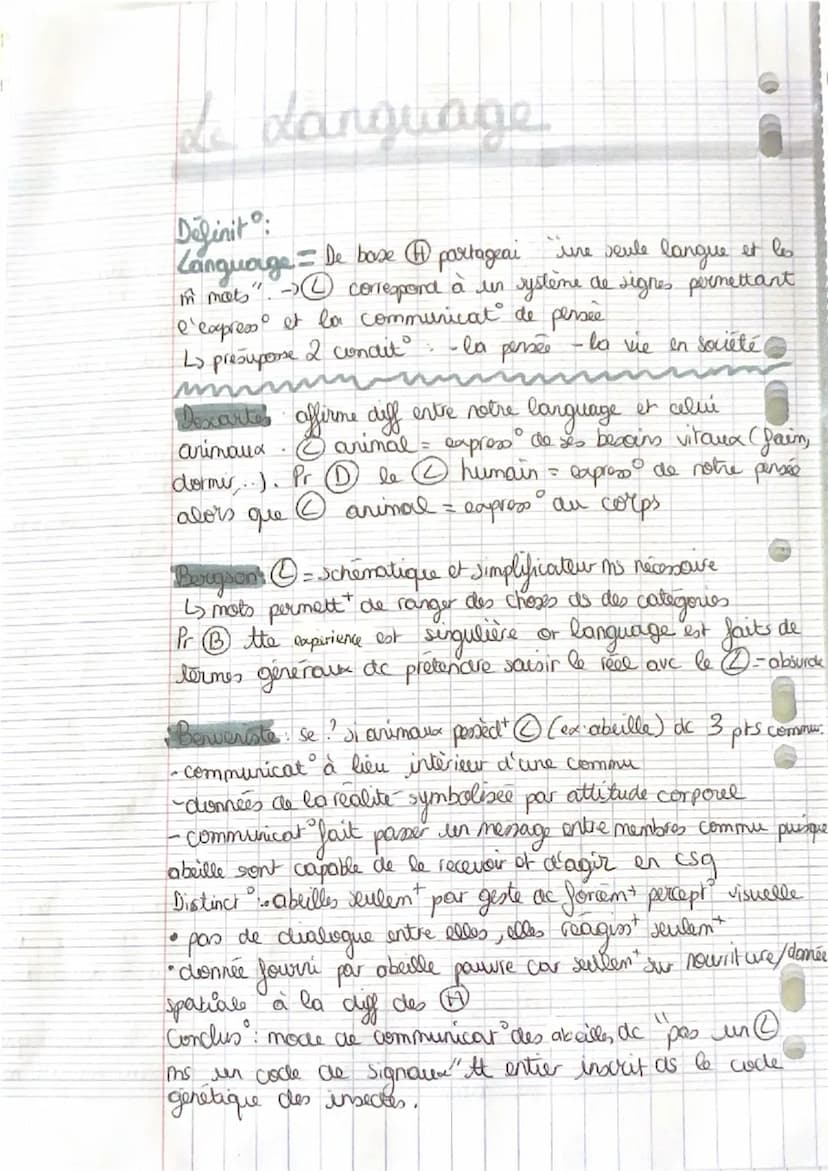 Le Language
Définit° :
Language = De base Ⓗ partageai "une seule langue et les
m̂ mots". → Ⓛ correspond à un système de signes permettant
l'express° et la communicat° de pensée
↳ présuppose 2 condit° : - la pensée - la vie en société
Descartes : affirme diff entre notre language et celui
animaux. Ⓛ animal = express° de ses besoins vitaux (faim,
dormir,...). Pr Ⓓ le Ⓛ humain = express° de notre pensée
alors que Ⓛ animal = express° du corps
Bergson : Ⓛ = schématique et simplificateur ms nécessaire
↳ mots permett+ de ranger des choses ds des catégories
Pr Ⓑ tte expérience est singulière or language est faits de
termes généraux dc prétendre saisir le réel avc le Ⓛ = absurde
Benveniste : se ? si animaux possèd+ Ⓛ (ex : abeille) dc 3 pts commun.
- communicat° à lieu intérieur d'une commu
- données de la réalité symbolisée par attitude corporel
- communicat° fait passer un message entre membres commu puisque
abeille sont capable de le recevoir et d'agir en csq
Distinct° : • abeilles seulem+ par geste dc forcém+ percept° visuelle
• pas de dialogue entre elles, elles réagiss+ seulem+
• donnée fourni par abeille pauvre car seulem+ sur nourriture/donnée
spatiale à la diff des Ⓗ
Conclus° : mode de communicat° des abeilles, dc "pas un Ⓛ
ms un code de signaux" tt entier inscrit ds le code
génétique des insectes.